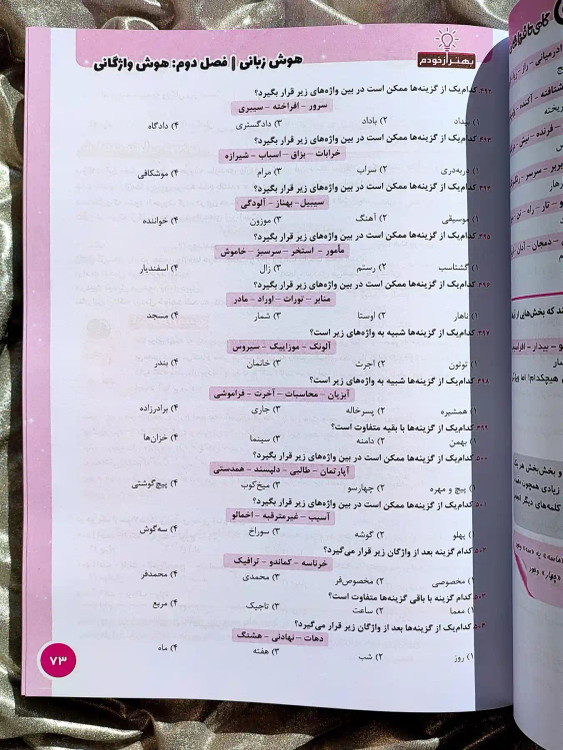 بهتر از خودم
هوش زبانی | فصل دوم: هوش واژگانی
۴۹۲. کدام‌یک از گزینه‌ها ممکن است در بین واژه‌های زیر قرار بگیرد؟
سرور – افراخته – سیبری
۱) بیداد ۲) باداد ۳) دادگستری ۴) دادگاه
۴۹۳. کدام‌یک از گزینه‌ها ممکن است در بین واژه‌های زیر قرار بگیرد؟
خرابات – بزاق – اسباب – شیرازه
۱) دربه‌دری ۲) سراب ۳) مرام ۴) موشکافی
۴۹۴. کدام‌یک از گزینه‌ها ممکن است در بین واژه‌های زیر قرار بگیرد؟
سیبیل – بهناز – آلودگی
۱) موسیقی ۲) آهنگ ۳) موزون ۴) خواننده
۴۹۵. کدام‌یک از گزینه‌ها ممکن است در بین واژه‌های زیر قرار بگیرد؟
مأمور – استخر – سرسبز – خاموش
۱) گشتاسب ۲) رستم ۳) زال ۴) اسفندیار
۴۹۶. کدام‌یک از گزینه‌ها ممکن است در بین واژه‌های زیر قرار بگیرد؟
منابر – تورات – اوراد – مادر
۱) ناهار ۲) اوستا ۳) شمار ۴) مسجد
۴۹۷. کدام‌یک از گزینه‌ها شبیه به واژه‌های زیر است؟
آلونک – موزاییک – سیروس
۱) توتون ۲) آجرت ۳) خانمان ۴) بندر
۴۹۸. کدام‌یک از گزینه‌ها شبیه به واژه‌های زیر است؟
آبزیان – محاسبات – آخرت – فراموشی
۱) همشیره ۲) پسرخاله ۳) جاری ۴) برادرزاده
۴۹۹. کدام‌یک از گزینه‌ها با بقیه متفاوت است؟
۱) بهمن ۲) دامنه ۳) سینما ۴) خزان‌ها
۵۰۰. کدام‌یک از گزینه‌ها ممکن است در بین واژه‌های زیر قرار بگیرد؟
آپارتمان – طالبی – دلپسند – همدستی
۱) پیچ و مهره ۲) چهارسو ۳) میخ‌کوب ۴) پیچ‌گوشتی
۵۰۱. کدام‌یک از گزینه‌ها ممکن است در بین واژه‌های زیر قرار بگیرد؟
آسیب – غیرمترقبه – اخمالو
۱) پهلو ۲) گوشه ۳) سوراخ ۴) سه‌گوش
۵۰۲. کدام گزینه بعد از واژگان زیر قرار می‌گیرد؟
خرناسه – کماندو – ترافیک
۱) مخصوصی ۲) مخصوص‌فر ۳) محمدی ۴) محمدفر
۵۰۳. کدام گزینه با باقی گزینه‌ها متفاوت است؟
۱) معما ۲) ساعت ۳) تاجیک ۴) مربع
۵۰۴. کدام‌یک از گزینه‌ها بعد از واژگان زیر قرار می‌گیرد؟
دهات – نهادنی – هشتگ
۱) روز ۲) شب ۳) هفته ۴) ماه
۷۳